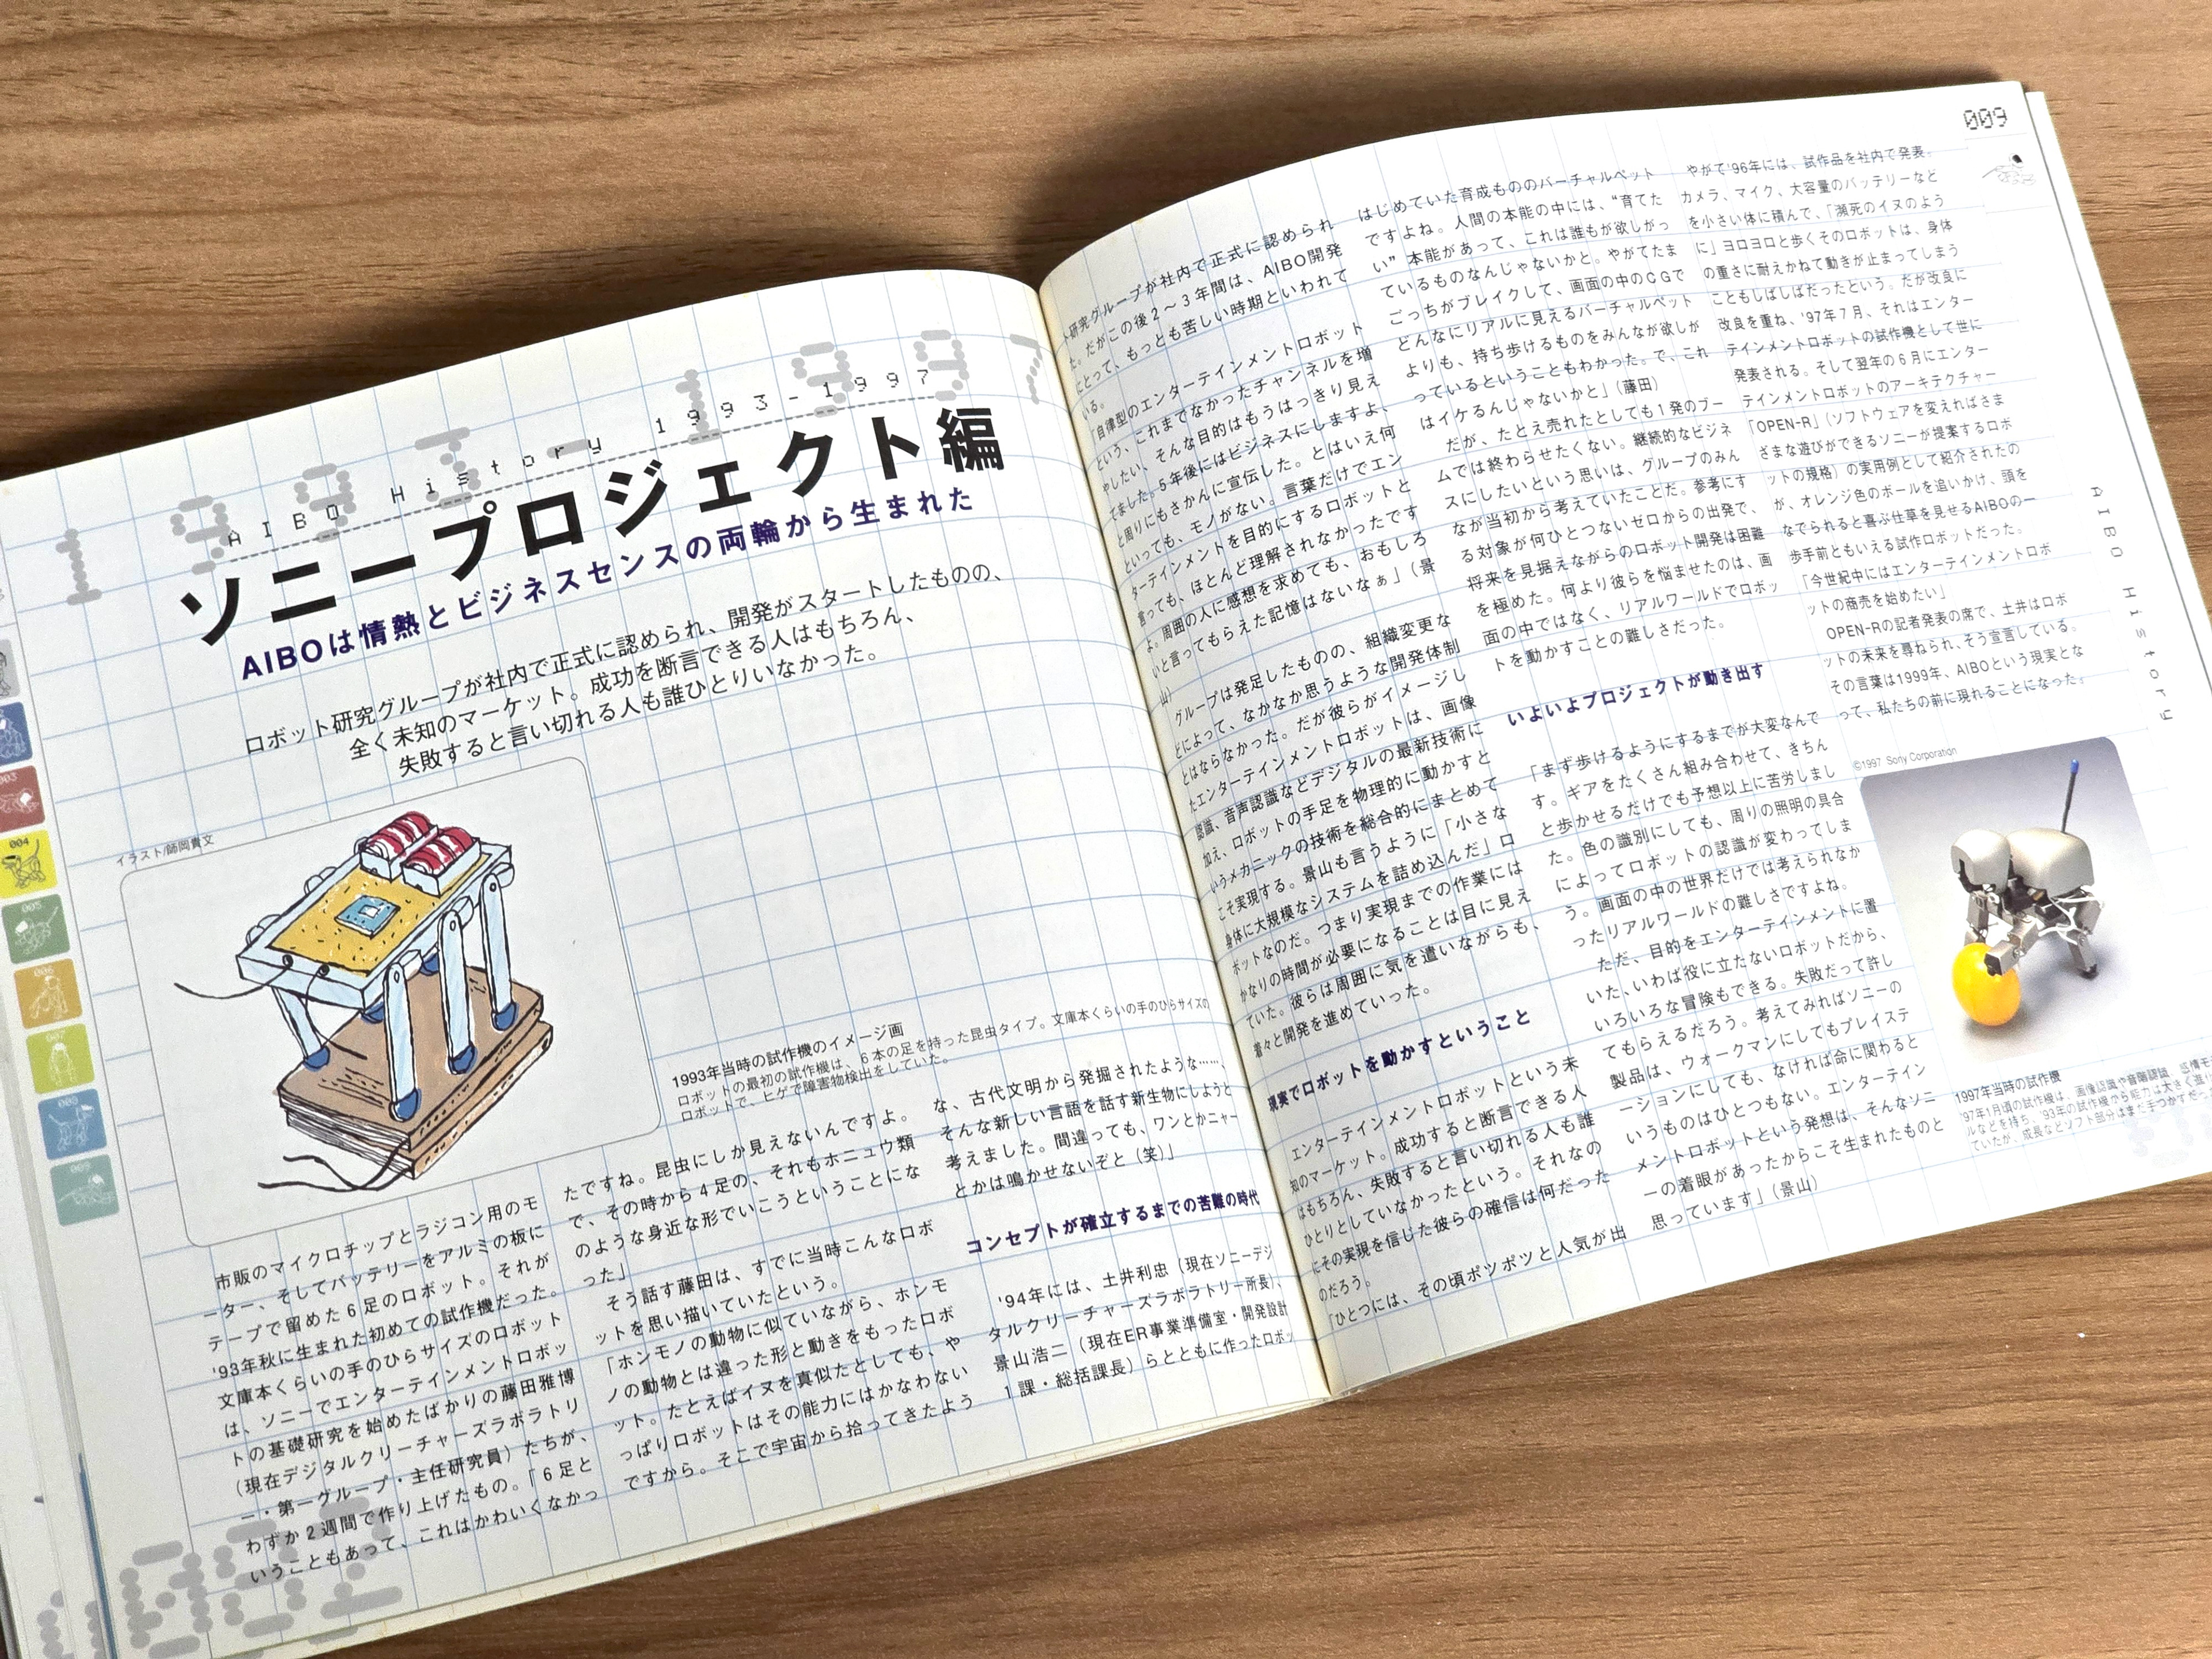 1993-1997
AIBO History 1993-1997
ソニープロジェクト編
AIBOは情熱とビジネスセンスの両輪から生まれた
ロボット研究グループが社内で正式に認められ、開発がスタートしたものの、
全く未知のマーケット。成功を断言できる人はもちろん、
失敗すると言い切れる人も誰ひとりいなかった。
イラスト/師岡貴文
1993年当時の試作機のイメージ画
ロボットの最初の試作機は、6本の足を持った昆虫タイプ。文庫本くらいの手のひらサイズの
ロボットで、ヒゲで障害物検出をしていた。
003
004
005
006
007
008
009
市販のマイクロチップとラジコン用のモ
ーター、そしてバッテリーをアルミの板に
テープで留めた6足のロボット。それが
'93年秋に生まれた初めての試作機だった。
文庫本くらいの手のひらサイズのロボット
は、ソニーでエンターテインメントロボッ
トの基礎研究を始めたばかりの藤田雅博
(現在デジタルクリーチャーズラボラトリ
ー・第一グループ・主任研究員)たちが、
わずか2週間で作り上げたもの。「6足と
いうこともあって、これはかわいくなかっ
たですね。昆虫にしか見えないんですよ。
で、その時から4足の、それもホニュウ類
のような身近な形でいこうということにな
った」
そう話す藤田は、すでに当時こんなロボ
ットを思い描いていたという。
「ホンモノの動物に似ていながら、ホンモ
ノの動物とは違った形と動きをもったロボ
ット。たとえばイヌを真似たとしても、や
っぱりロボットはその能力にはかなわない
ですから。そこで宇宙から拾ってきたよう
な、古代文明から発掘されたような……、
そんな新しい言語を話す新生物にしようと
考えました。間違っても、ワンとかニャー
とかは鳴かせないぞと(笑)」
コンセプトが確立するまでの苦難の時代
'94年には、土井利忠(現在ソニーデジ
タルクリーチャーズラボラトリー所長)、
景山浩二(現在ER事業準備室・開発設計
1課・総括課長)らとともに作ったロボッ
ト研究グループが社内で正式に認められ
た。だがこの後2〜3年間は、AIBO開発
にとって、もっとも苦しい時期といわれて
いる。
「自律型のエンターテインメントロボット
という、これまでなかったチャンネルを増
やしたい、そんな目的はもうはっきり見え
てました。5年後にはビジネスにしますよ、
と周りにもさかんに宣伝した。とはいえ何
といっても、モノがない。言葉だけでエン
ターテインメントを目的にするロボットと
言っても、ほとんど理解されなかったです
よ。周囲の人に感想を求めても、おもしろ
いと言ってもらえた記憶はないなぁ」(景
山)
グループは発足したものの、組織変更な
どによって、なかなか思うような開発体制
とはならなかった。だが彼らがイメージし
たエンターテインメントロボットは、画像
認識、音声認識などデジタルの最新技術に
加え、ロボットの手足を物理的に動かすと
いうメカニックの技術を総合的にまとめて
こそ実現する。景山も言うように「小さな
身体に大規模なシステムを詰め込んだ」ロ
ボットなのだ。つまり実現までの作業には
かなりの時間が必要になることは目に見え
ていた。彼らは周囲に気を遣いながらも、
着々と開発を進めていった。
現実でロボットを動かすということ
エンターテインメントロボットという未
知のマーケット。成功すると断言できる人
はもちろん、失敗すると言い切れる人も誰
ひとりとしていなかったという。それなの
にその実現を信じた彼らの確信は何だった
のだろう。
「ひとつには、その頃ポツポツと人気が出
はじめていた育成もののバーチャルペット
ですよね。人間の本能の中には、“育てた
い”本能があって、これは誰もが欲しがっ
ているものなんじゃないかと。やがてたま
ごっちがブレイクして、画面の中のCGで
どんなにリアルに見えるバーチャルペット
よりも、持ち歩けるものをみんなが欲しが
っているということもわかった。で、これ
はイケるんじゃないかと」(藤田)
だが、たとえ売れたとしても1発のブー
ムでは終わらせたくない。継続的なビジネ
スにしたいという思いは、グループのみん
なが当初から考えていたことだ。参考にす
る対象が何ひとつないゼロからの出発で、
将来を見据えながらのロボット開発は困難
を極めた。何より彼らを悩ませたのは、画
面の中ではなく、リアルワールドでロボッ
トを動かすことの難しさだった。
いよいよプロジェクトが動き出す
「まず歩けるようにするまでが大変なんで
す。ギアをたくさん組み合わせて、きちん
と歩かせるだけでも予想以上に苦労しまし
た。色の識別にしても、周りの照明の具合
によってロボットの認識が変わってしま
う。画面の中の世界だけでは考えられなか
ったリアルワールドの難しさですよね。
ただ、目的をエンターテインメントに置
いた、いわば役に立たないロボットだから、
いろいろな冒険もできる。失敗だって許し
てもらえるだろう。考えてみればソニーの
製品は、ウォークマンにしてもプレイステ
ーションにしても、なければ命に関わると
いうものはひとつもない。エンターテイン
メントロボットという発想は、そんなソニ
ーの着眼があったからこそ生まれたものと
思っています」(景山)
やがて'96年には、試作品を社内で発表。
カメラ、マイク、大容量のバッテリーなど
を小さい体に積んで、「瀕死のイヌのよう
に」ヨロヨロと歩くそのロボットは、身体
の重さに耐えかねて動きが止まってしまう
こともしばしばだったという。だが改良に
改良を重ね、'97年7月、それはエンター
テインメントロボットの試作機として世に
発表される。そして翌年の6月にエンター
テインメントロボットのアーキテクチャー
「OPEN-R」(ソフトウェアを変えればさま
ざまな遊びができるソニーが提案するロボ
ットの規格)の実用例として紹介されたの
が、オレンジ色のボールを追いかけ、頭を
なでられると喜ぶ仕草を見せるAIBOの一
歩手前ともいえる試作ロボットだった。
「今世紀中にはエンターテインメントロボ
ットの商売を始めたい」
OPEN-Rの記者発表の席で、土井はロボ
ットの未来を尋ねられ、そう宣言している。
その言葉は1999年、AIBOという現実とな
って、私たちの前に現れることになった。
©1997 Sony Corporation
1997年当時の試作機
'97年1月頃の試作機は、画像認識や音声認識、感情モ
ルなどを持ち、'93年の試作機から能力は大きく進
ていたが、成長などソフト部分はまだ手つかずだっ
009
AIBO History